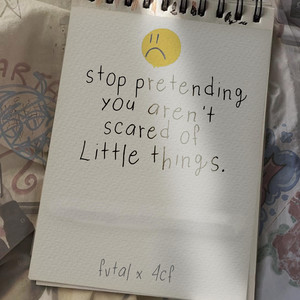 stop pretending
you aren't
scared of
Little things.
futal x 4cf